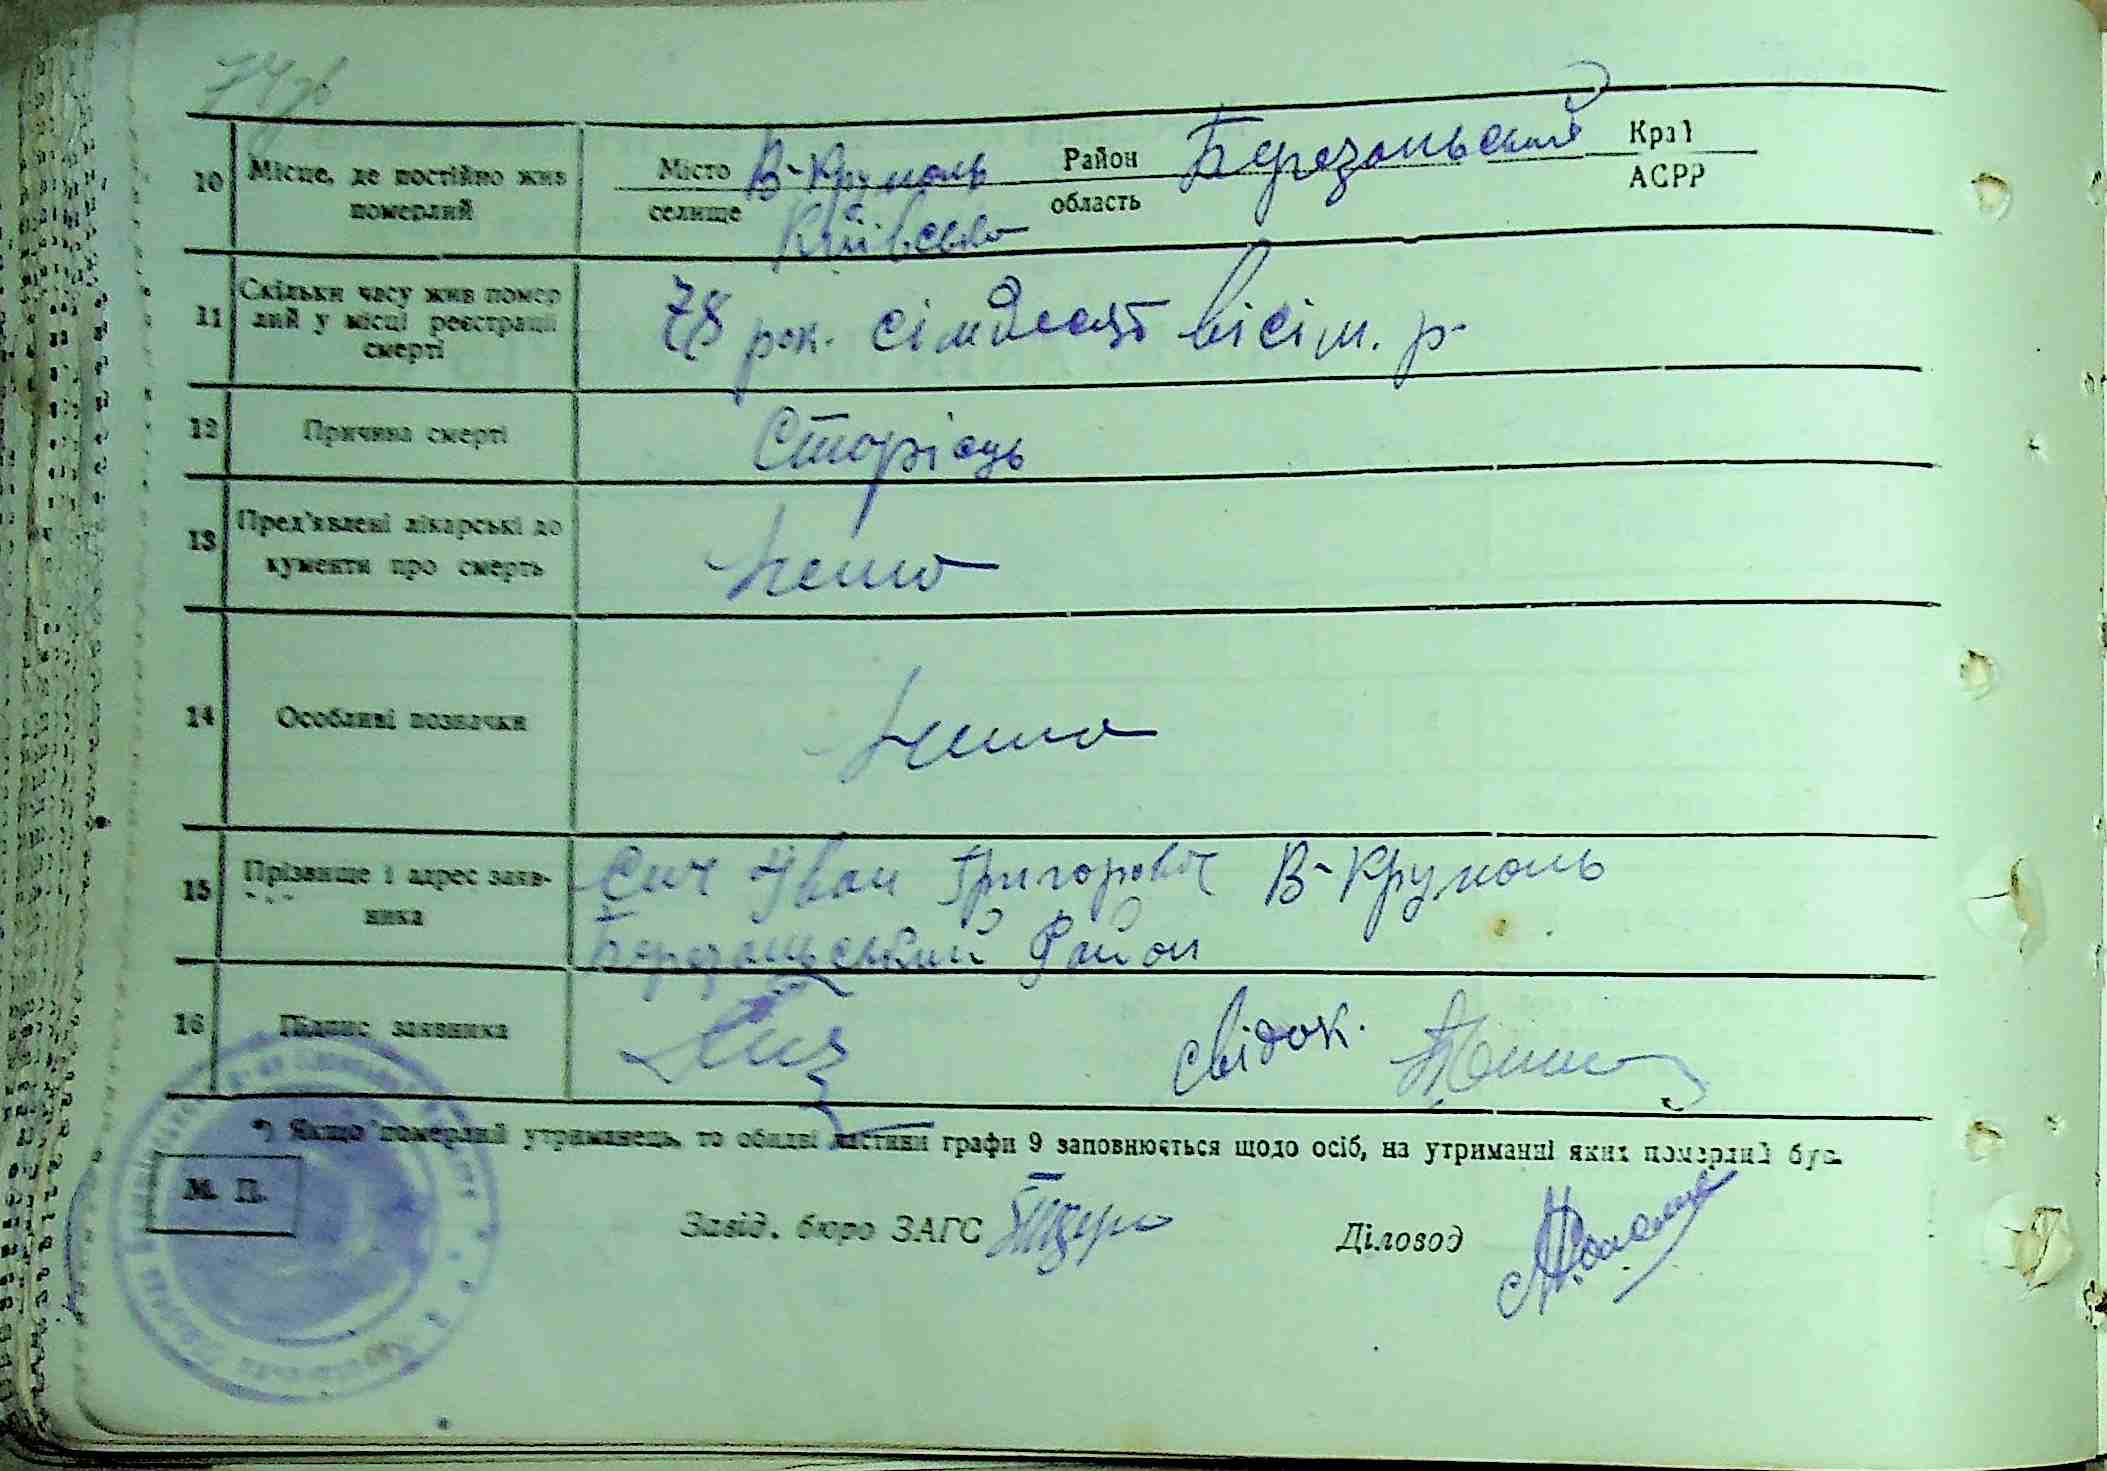 74зв
10 Місце, де постійно жив померлий
Місто селище В-Круполь Район область Березанський Край АСРР
Київська
11 Скільки часу жив помер
лий у місці реєстрації
смерті
78 рок. сімдесят вісім. р.
12 Причина смерті Старість
13 Пред'явлені лікарські до
кументи про смерть
нема
14 Особливі позначки нема
15 Прізвище і адрес заяв-
ника
Сич Іван Григоровіч В-Круполь
Березанський Район
16 Підпис заявника Сич свідок.
*) Якщо померлий утриманець, то обидві частини графи 9 заповнюється щодо осіб, на утриманні яких померлий був.
М. П.
Завід. бюро ЗАГС Діловод